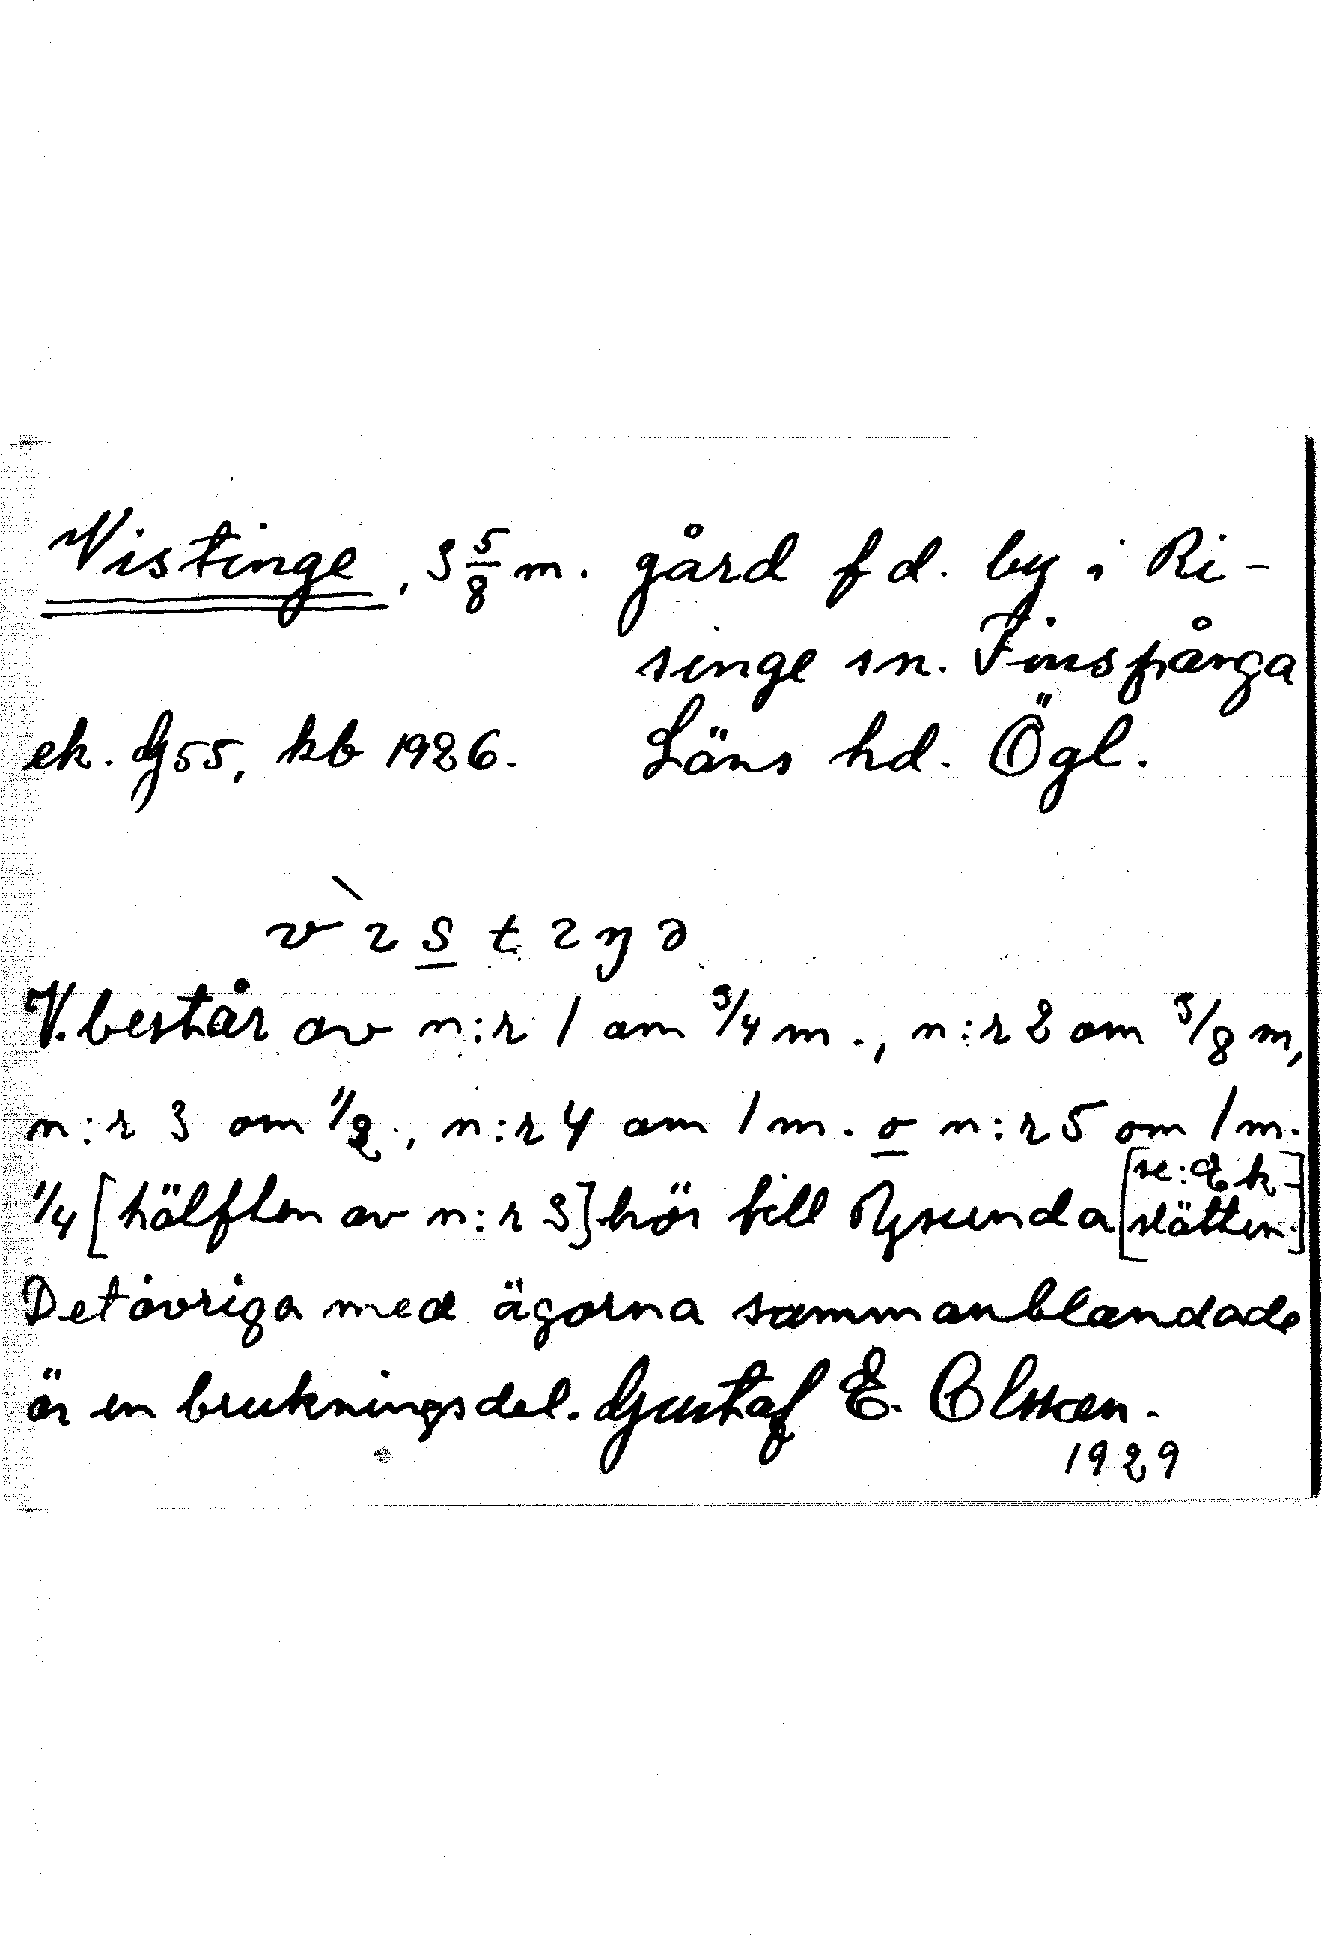 Vistinge, 3 5/8 m. gård f d. by i Ri-
singe sn. Finspånga
ek. Gg 55, kb 1926. Läns hd. Ögl.
v̀ɪstɪŋə
V. består av n:r 1 om 3/4 m., n:r 2 om 3/8 m,
n:r 3 om 1/2., n:r 4 om 1 m. o n:r 5 om 1 m.
1/4 [hälften av n:r 3] hör till Rysunda [se: Ek-
slätten.]
Det övriga med ägorna sammanblandade
är en brukningsdel. Gustaf E. Olsson.
1929